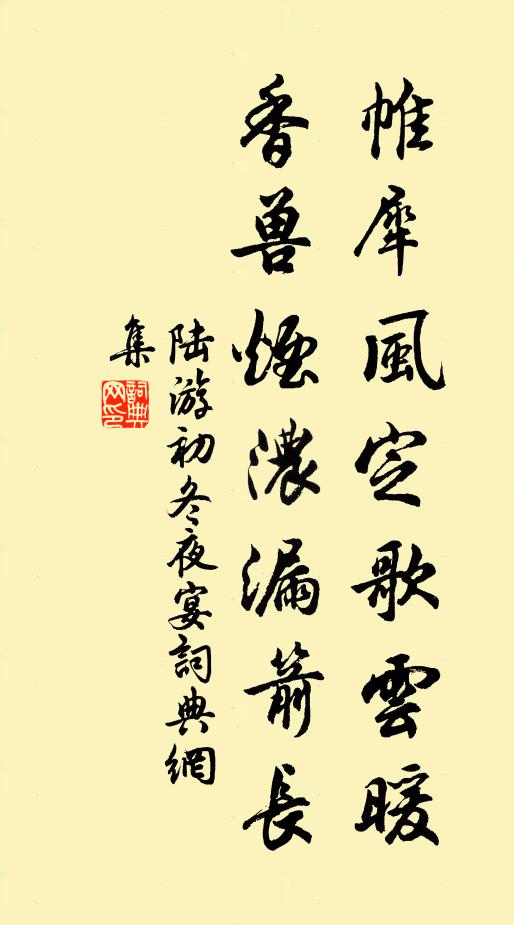 帷犀風定歌雲暖
香兽煙濃漏箭長
陆游初冬夜宴詞典網
集
詞典
网印